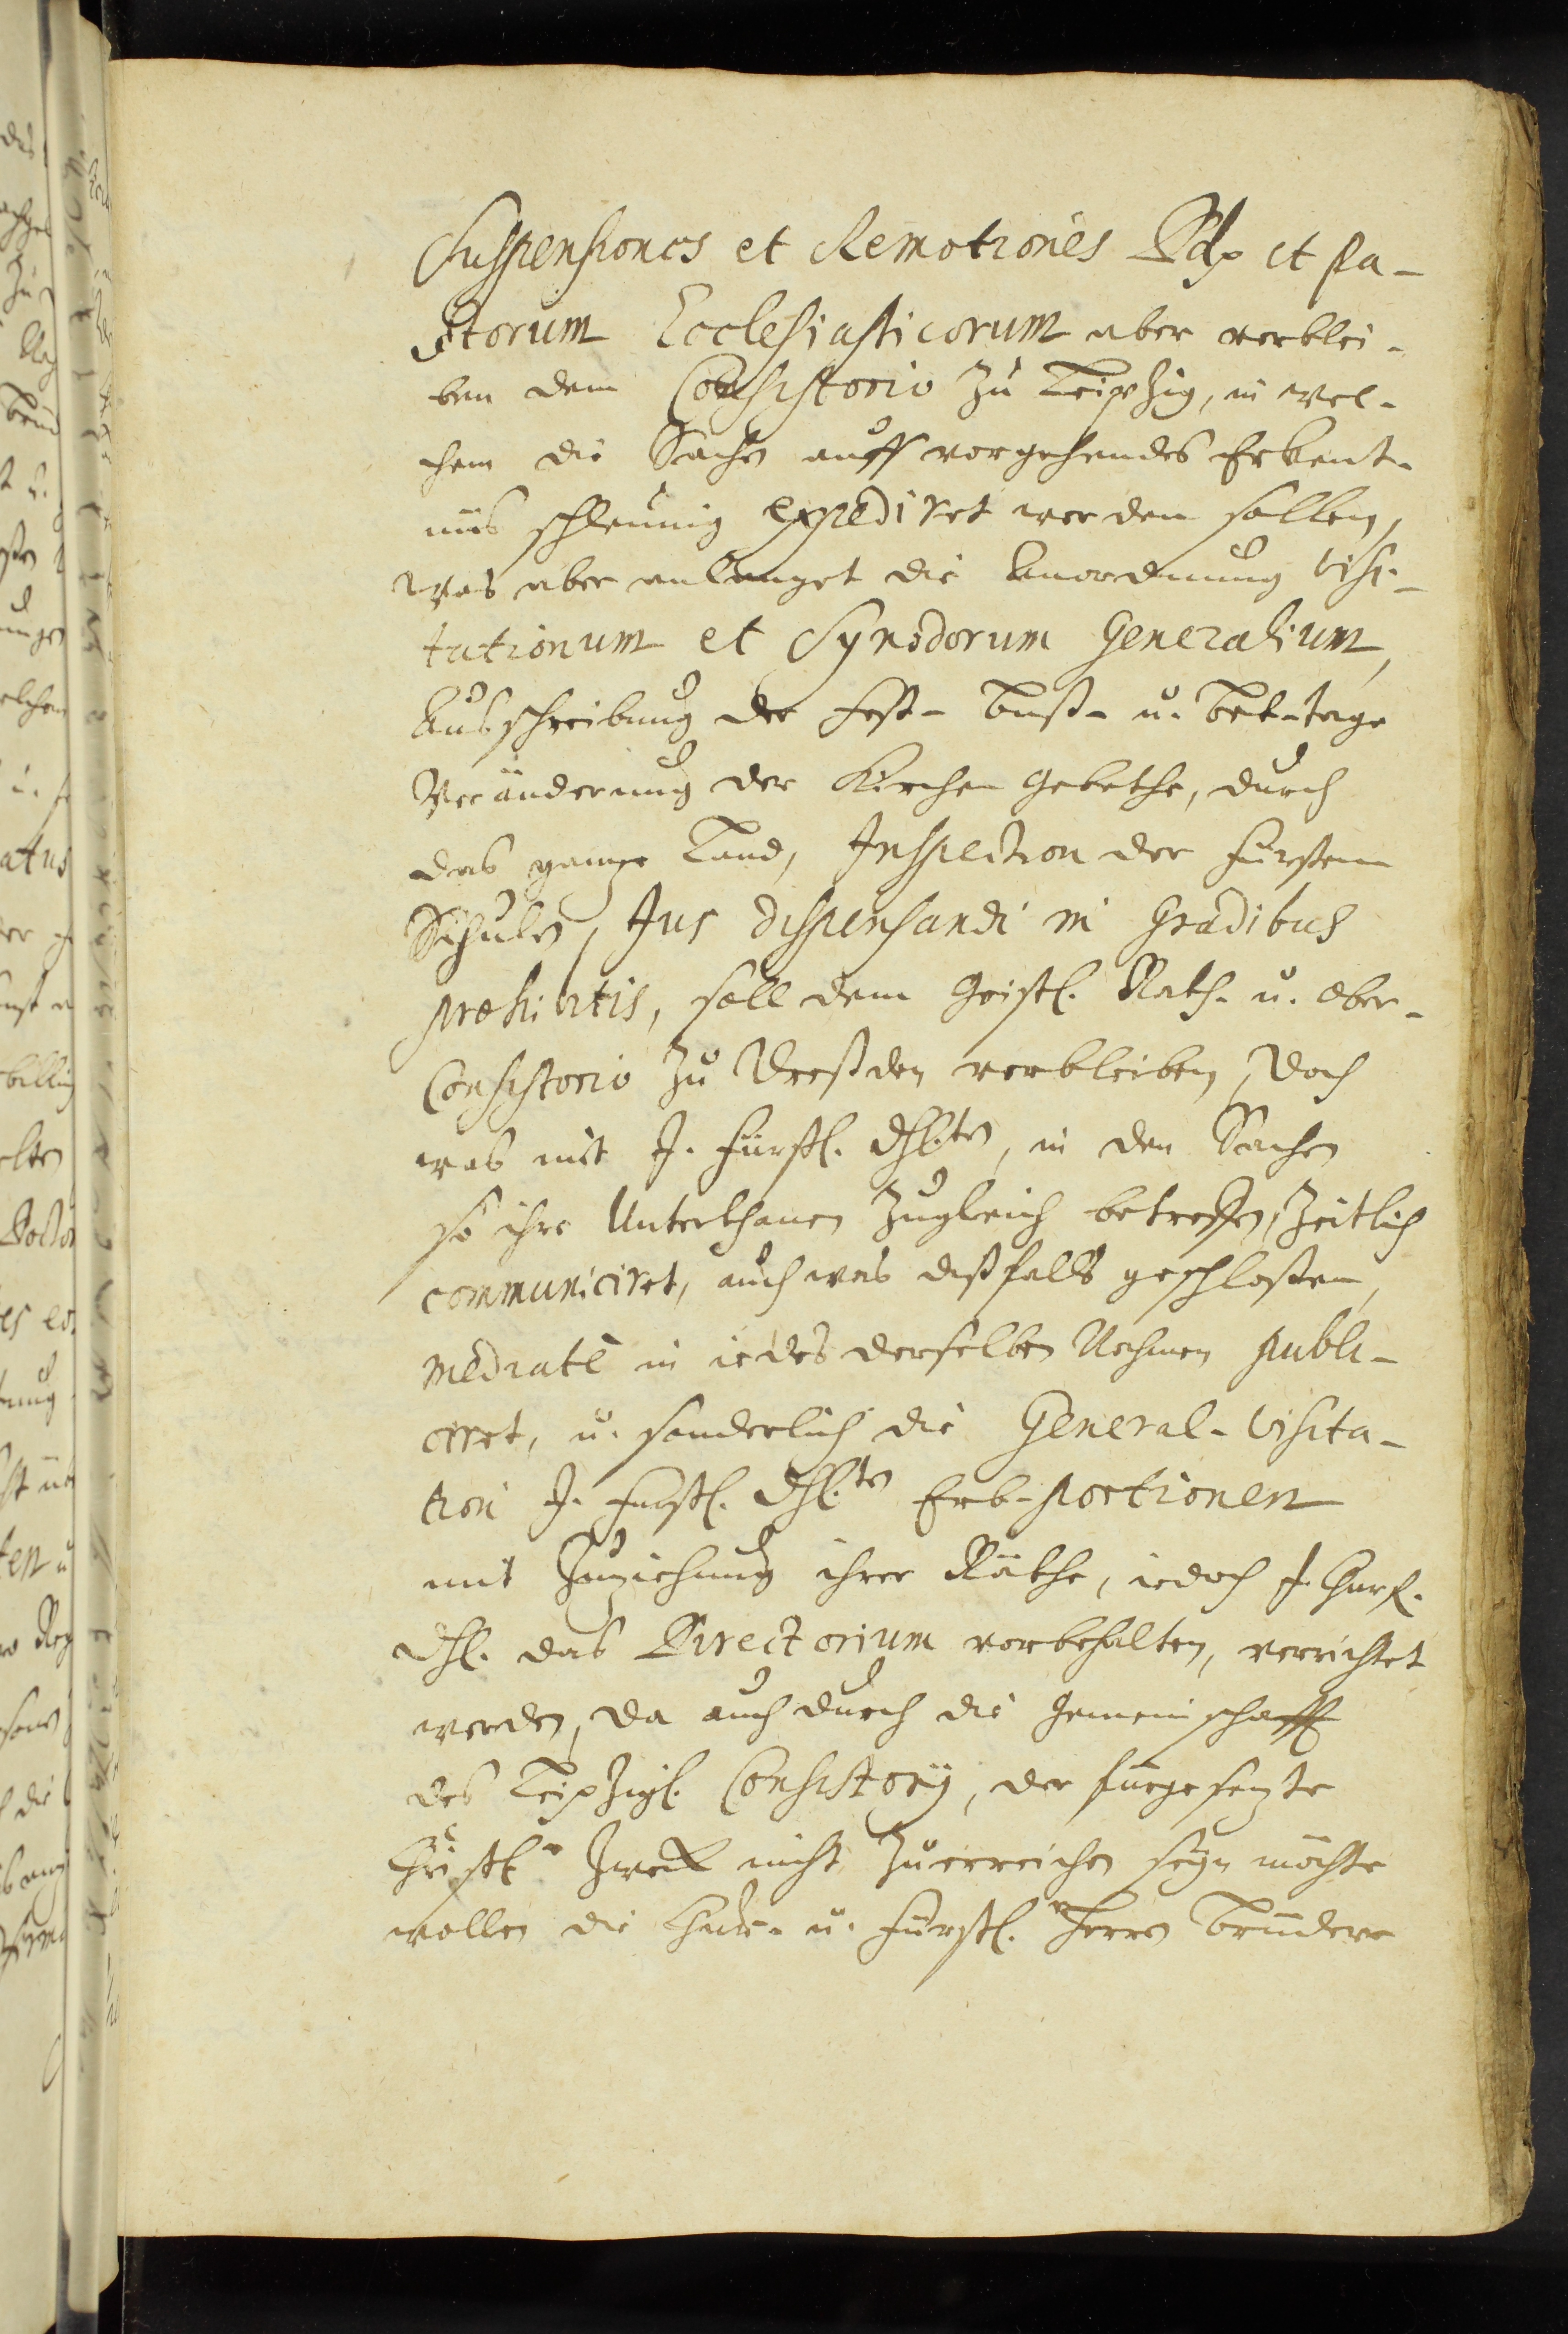 Suspensiones et Remotiones Ddp et Pa-
storum Ecclesiasticorum aber verblei-
ben dem Consistorio zu Leipzig, in wel-
chem die Sachen auff vorgehendes Erkent-
nüs schleunig expediret werden sollen,
Was aber anlanget die Anordnung Visi-
tationum et Synodorum Generalium,
Ausschreibung der Fest- Buß- u. Bet-tage
Veränderung der Kirchen Gebethe, durch
das gantze Land, Inspection der Fürsten
Schulen, Jus dispensandi in Gradibus
prohibitis, soll dem Geistl. Rath- u. Ober-
Consistorio zu Dreßden verbleiben, Doch
was mit J. Fürstl. Dhl.ten, in den Sachen
so ihre Unterthanen zugleich betreffen, zeitlich
communiciret, auch was deßfalls geschloßen,
mediatè in iedes derselben Nahmen publi-
ciret, u. sonderlich die General-Visita-
tion J. Fürstl. Dhl.ten Erb-portionen
mit Zuziehung ihrer Räthe, iedoch J. Churf.
Dhl. das Directorium vorbehalten, verrichtet
werden, Da auch durch die Gemeinschafft
des Leipzigl. Consistorij, der fürgesezte
Christl. Zweck nicht zuerreichen seyn möchte
wollen die Chur- u. Fürstl. Herren Brüdere